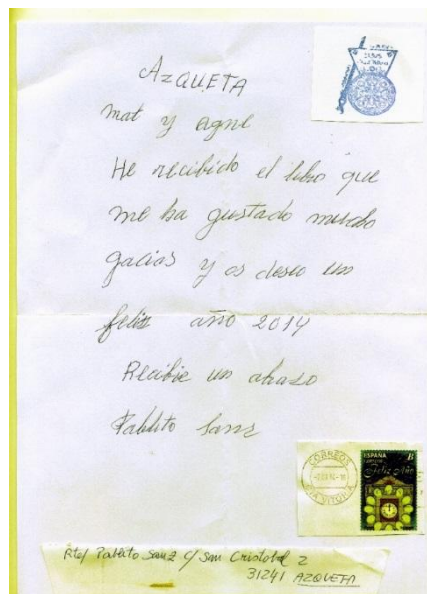 AZQUETA
mat y agne
He recibido el libro que
me ha gustado mucho
gacias y os deseo un
feliz año 2014
Recibie un abaso
Pablito Sanz
CORREOS
VITORIA
ESPAÑA
B
Feliz Año
Rte/ Pablito Sanz c/ San Cristobal 2
31241 AZQUETA